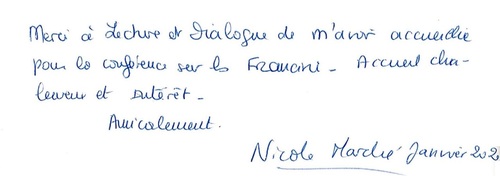 Merci à Lecture et Dialogue de m'avoir accueillie
pour la conférence sur les Francini - Accueil cha-
leureux et intérêt -
Amicalement.
Nicole Marché Janvier 202